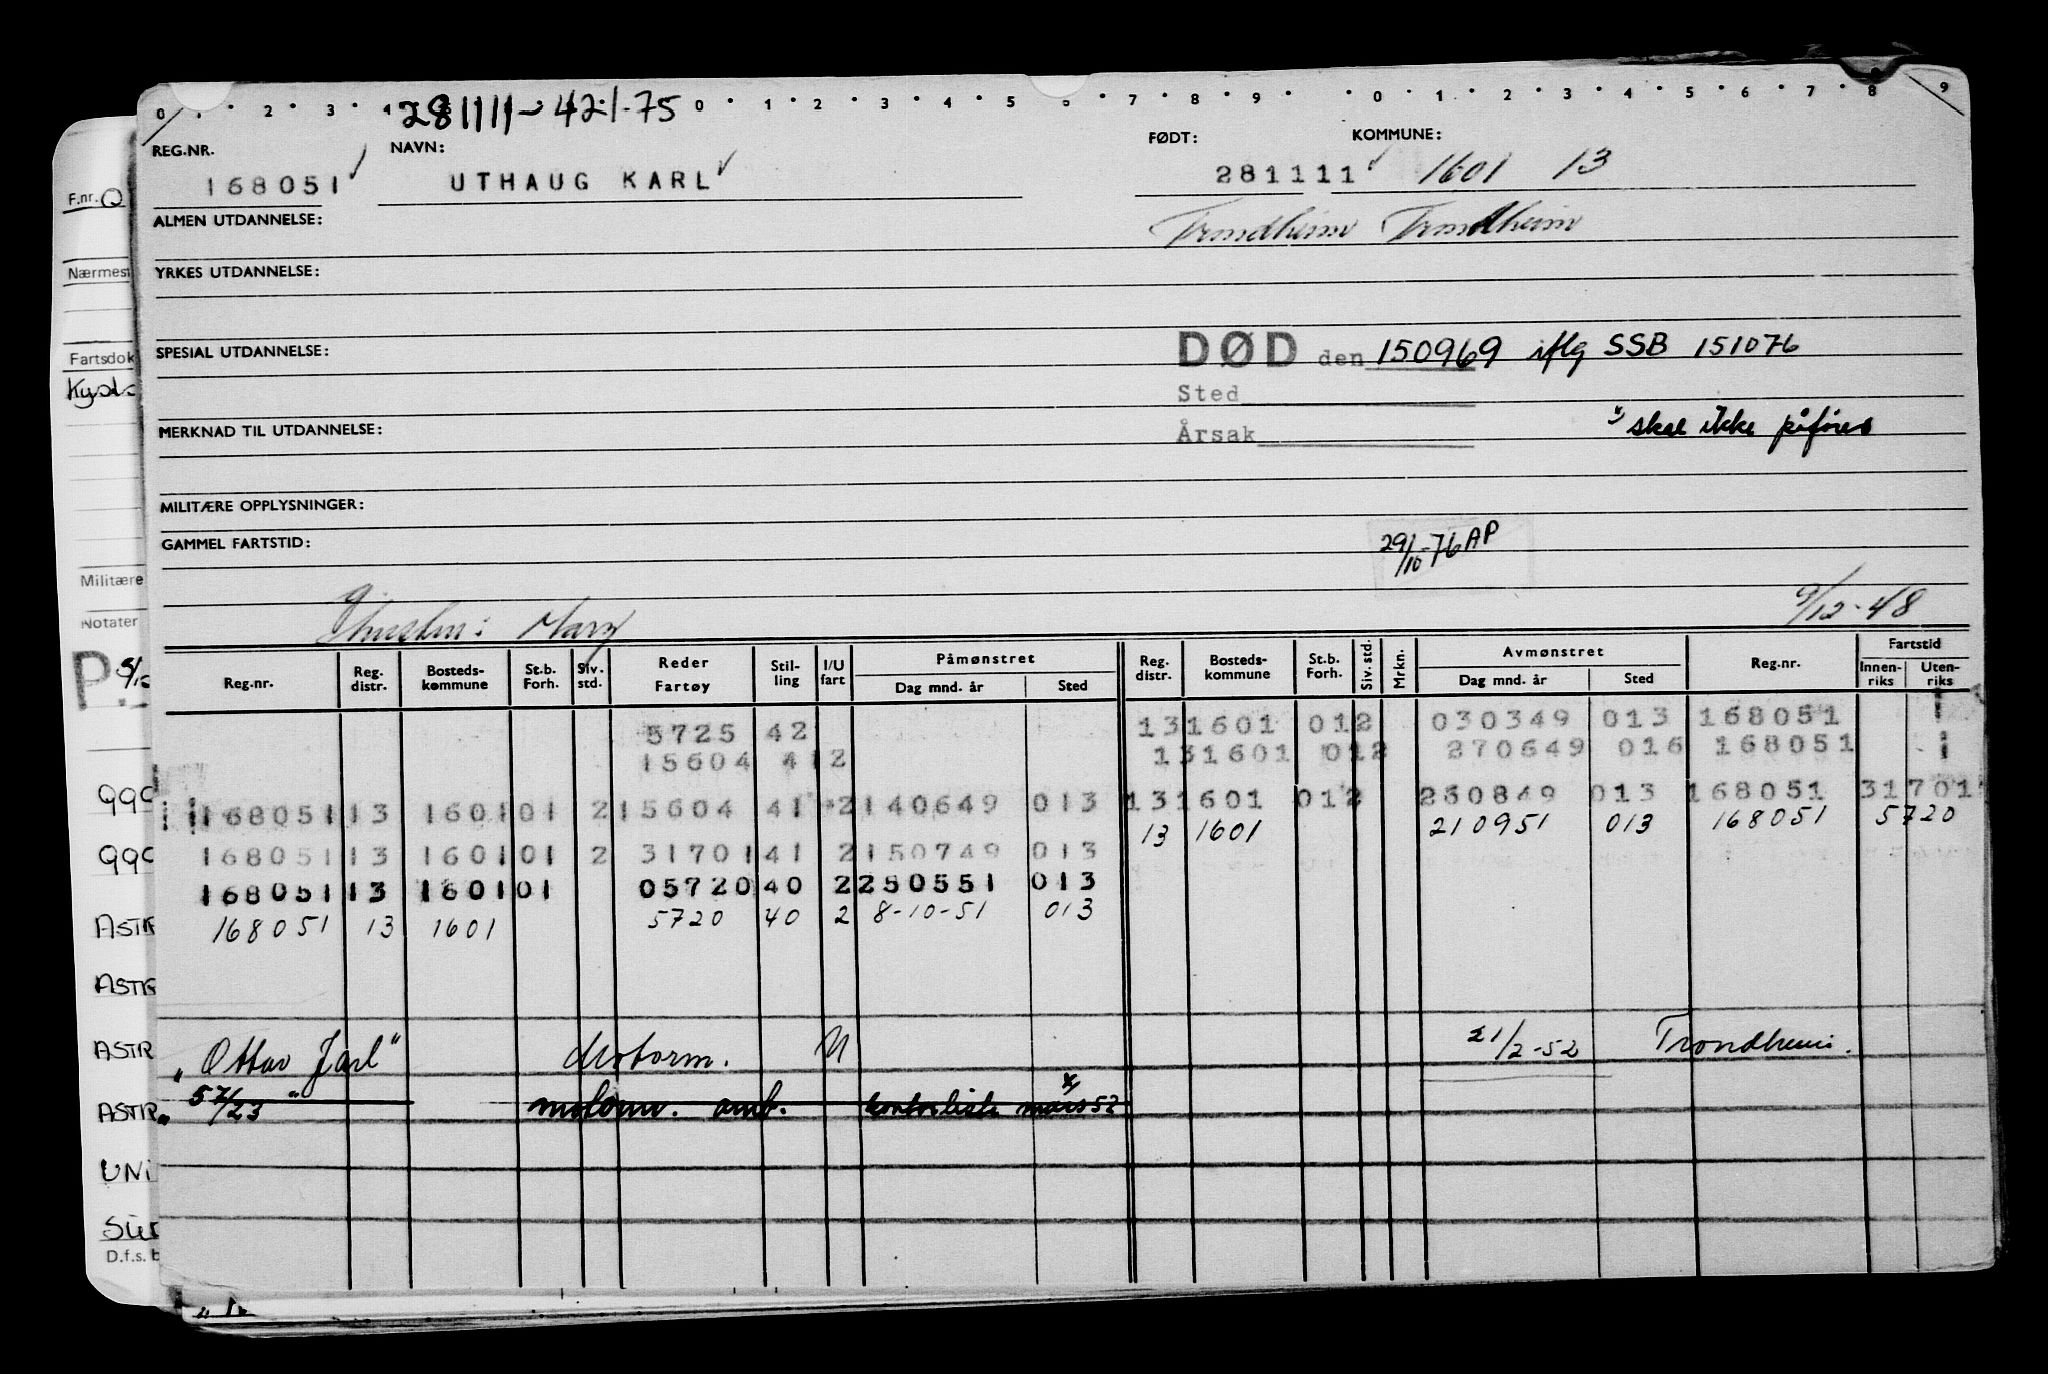 0 . 2 3 4 0 . 1 2 . 3 . 4 . 5 . 6 . 7 . 8 . 9 . 0 . 1 . 2 . 3 . 4 . 5 . 6 . 7 . 8 . 9
281111-421.75
REG.NR. NAVN: FØDT: KOMMUNE:
168051 UTHAUG KARL 281111 1601 13
F.nr.
ALMEN UTDANNELSE: Trondheim Trondheim
Nærmest YRKES UTDANNELSE:
Fartsdok SPESIAL UTDANNELSE: DØD den 150969 iflg SSB 151076
Kyst
Sted
MERKNAD TIL UTDANNELSE: Årsak x) skal ikke påføres
MILITÆRE OPPLYSNINGER:
GAMMEL FARTSTID: 29/10-76 AP
Militære
Notater
Mary 9/12-48
Reg.nr. Reg. distr. Bosteds-kommune St.b. Forh. Siv. std. Reder Fartøy Stil-ling I/U fart Påmønstret Dag mnd. år Sted Reg. distr. Bosteds-kommune St.b. Forh. Siv. std. Mrkn. Avmønstret Dag mnd. år Sted Reg.nr. Fartstid Innen-riks Uten-riks
5725 42 13 1601 01 2 030349 013 168051
15604 41 2 13 1601 01 2 270649 016 168051
168051 13 1601 01 2 15604 41 2 140649 013 13 1601 01 2 250849 013 168051 31701
13 1601 210951 013 168051 5720
168051 13 1601 01 2 31701 41 2 150749 013
168051 13 1601 01 05720 40 2 250551 013
168051 13 1601 5720 40 2 8-10-51 013
"Ottar Jarl" Motorm. U 21/2-52 Trondheim.
" 57/23 " motorm. omb. kontrolliste mars 52 x)
P
990
990
ASTR
ASTR
ASTR
ASTR
UNI
D.f.s. b